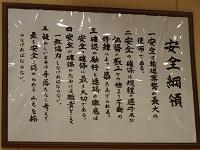 安全綱領
一 安全は輸送業務の最大の
使命である
二 安全の確保は規程の遵守及び
執務の厳正から始まり不断の
修練によって築きあげられる
三 確認の励行と連絡の徹底は
安全の確保に最も大切である
四 安全の確保のためには職責をこえて
一致協力しなければならない
五 疑わしいときは手落ちなく考えて
最も安全と認められるみちを採
らなければならない